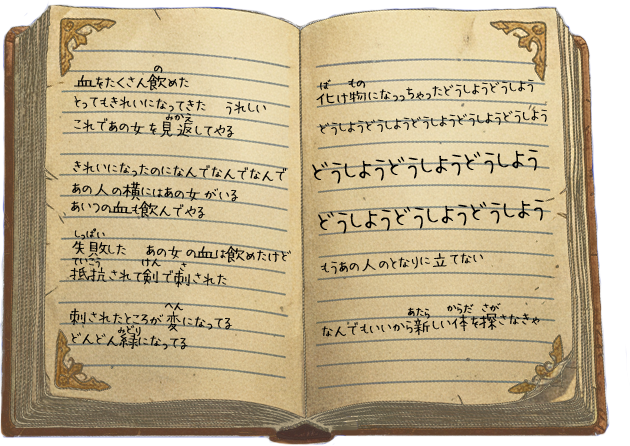 血をたくさん飲めた
とってもきれいになってきた　うれしい
これであの女を見返してやる
きれいになったのになんでなんでなんで
あの人の横にはあの女がいる
あいつの血も飲んでやる
失敗した　あの女の血は飲めたけど
抵抗されて剣で刺された
刺されたところが変になってる
どんどん緑になってる
化け物になっっちゃったどうしようどうしよう
どうしようどうしようどうしようどうしよう
どうしようどうしようどうしよう
どうしようどうしようどうしよう
もうあの人のとなりに立てない
なんでもいいから新しい体を探さなきゃ